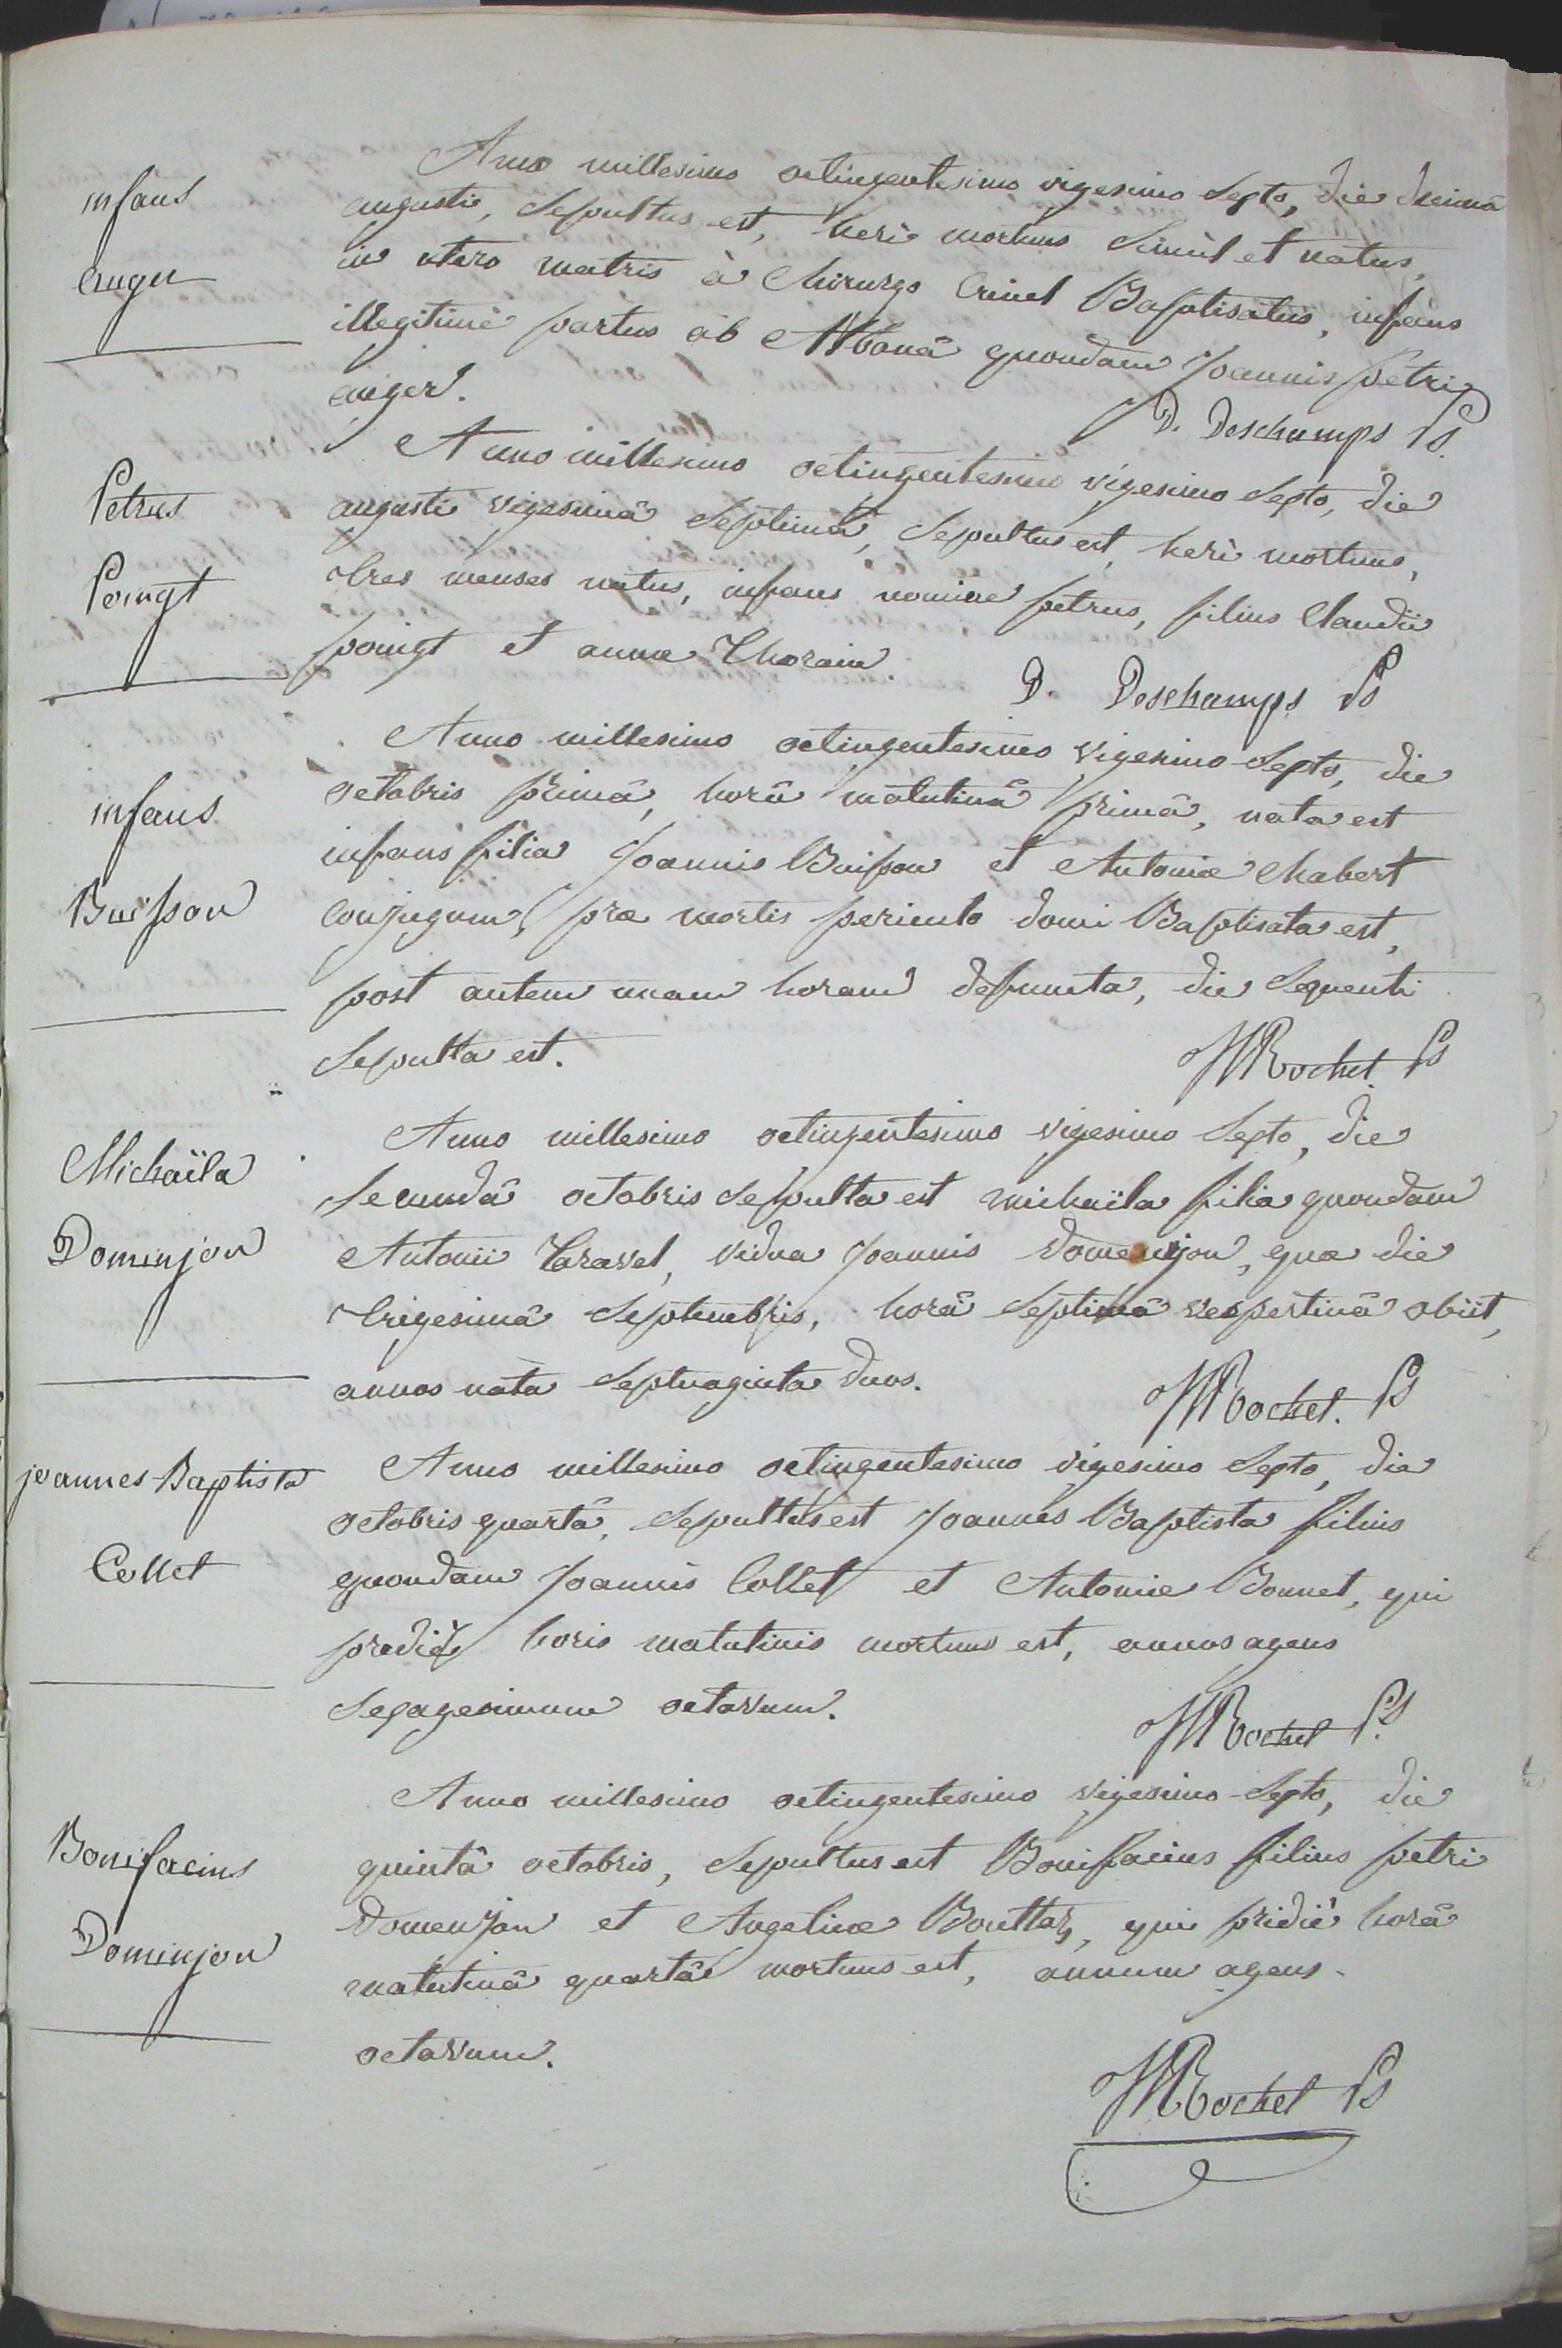 infans
auger
Anno millesimo octingentesimo vigesimo septo, die decimâ
augusti, sepultus est, heri mortuus simùl et natus,
in utero matris à chirurgo Crinel Baptisatus, infans
illegitimè partus ab Albanâ quondam Joannis petri
auger.
D. Deschamps
Petrus
Poingt
Anno millesimo octingentesimo vigesimo septo, die
augusti vigesimâ septimâ, sepultus est, heri mortuus,
tres menses natus, infans nomine petrus, filius Claudii
poingt et annæ Thorain
D. Deschamps
infans
Buisson
Anno millesimo octingentesimo vigesimo septo, die
octobris primâ, horâ matutinâ primâ, nata est
infans filia Joannis Buisson et Antoniæ Chabert
conjugum, præ mortis periculo domi Baptisata est,
post autem unam horam defuncta, die sequenti
sepulta est.
Rochet
Michaïla
Dominjon
Anno millesimo octingentesimo vigesimo septo, die
secundâ octobris sepulta est michaïla filia quondam
Antonii Taravel, vidua Joannis domenjon, quæ die
trigesimâ septembris, horâ septimâ vespertinâ obiit,
annos nata septuaginta duos.
Rochet.
joannes-Baptista
Collet
Anno millesimo octingentesimo vigesimo septo, die
octobris quartâ, sepultus est Joannes Baptista filius
quondam Joannis Collet et Antoniæ Bonnet, qui
pridiè horis matutinis mortuus est, annos agens
sexagesimum octavum.
Rochet
Bonifacius
Dominjon
Anno millesimo octingentesimo vigesimo septo, die
quintâ octobris, sepultus est Bonifacius filius petri
domenjon et Angelinæ Bouttaz, qui pridiè horâ
matutinâ quartâ mortuus est, annum agens
octavum.
Rochet